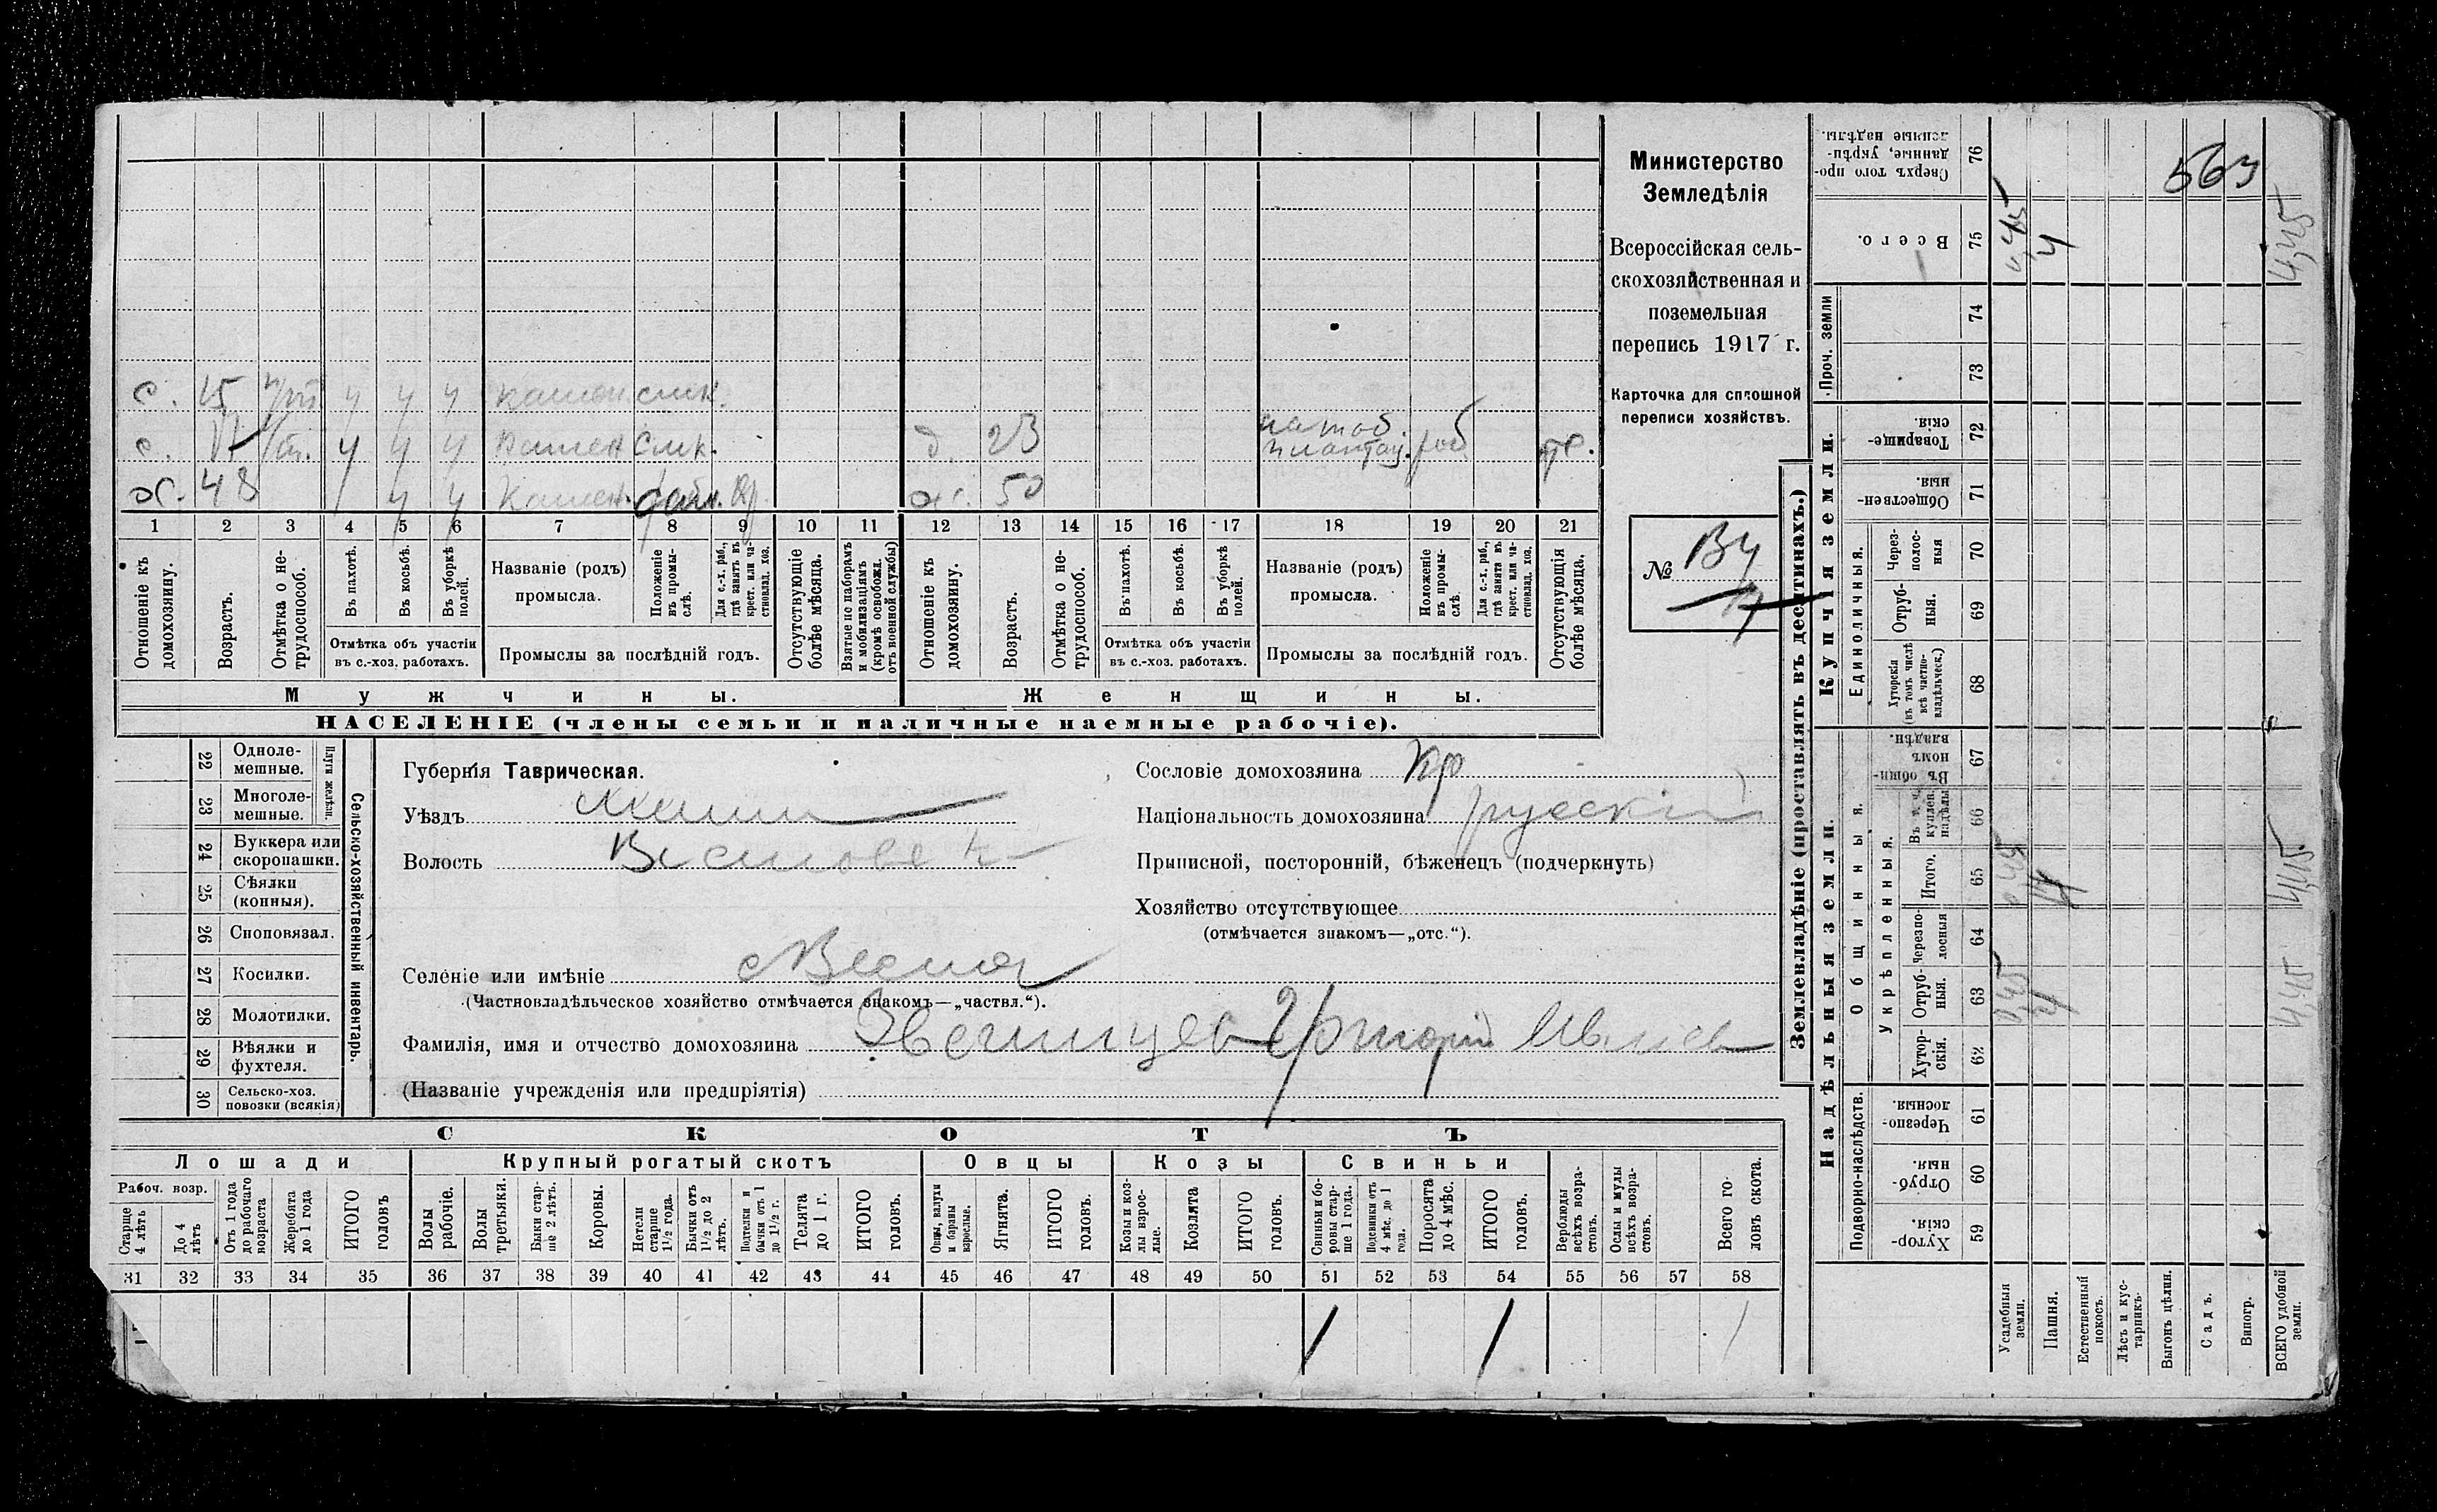 Министерство
Земледѣлія
Всероссійская сель-
скохозяйственная и
поземельная
перепись 1917 г.
Карточка для сплошной
переписи хозяйствъ.
№
563
с. 15 камен.
с. камен
48 Камен.
д. 23
50
1 2 3 4 5 6 7 8 9 10 11 12 13 14 15 16 17 18 19 20 21
Отношеніе къ домохозяину.
Возрастъ.
Отмѣтка о не-трудоспособ.
Въ пахотѣ.
Въ косьбѣ.
Въ уборкѣ полей.
Отмѣтка объ участіи
въ с.-хоз. работахъ.
Названіе (родъ)
промысла.
Положеніе въ промы-слѣ.
Для с.-х. раб., гдѣ занятъ въ крест. или ча-стновлад. хоз.
Промыслы за послѣдній годъ.
Отсутствующіе болѣе мѣсяца.
Взятые по наборамъ и мобилизаціямъ (кромѣ освобожд. отъ военной службы)
Отношеніе къ домохозяину.
Возрастъ.
Отмѣтка о не-трудоспособ.
Въ пахотѣ.
Въ косьбѣ.
Въ уборкѣ полей.
Отмѣтка объ участіи
въ с.-хоз. работахъ.
Названіе (родъ)
промысла.
Положеніе въ промы-слѣ.
Для с.-х. раб., гдѣ занята въ крест. или ча-стновлад. хоз.
Промыслы за послѣдній годъ.
Отсутствующія болѣе мѣсяца.
Мужчины.
Женщины.
НАСЕЛЕНІЕ (члены семьи и наличные наемные рабочіе).
22 Одноле-мешные.
23 Многоле-мешные.
Плуги желѣзн.
24 Буккера или скоропашки.
25 Сѣялки (конныя).
26 Сноповязал.
27 Косилки.
28 Молотилки.
29 Вѣялки и фухтеля.
30 Сельско-хоз. повозки (всякія)
Сельско-хозяйственный инвентарь.
Губернія Таврическая.
Уѣздъ
Волость
Селеніе или имѣніе
(Частновладѣльческое хозяйство отмѣчается знакомъ—„частвл.“).
Фамилія, имя и отчество домохозяина Звегинцев Григорій Иванов
(Названіе учрежденія или предпріятія)
Сословіе домохозяина кр
Національность домохозяина русскій
Приписной, посторонній, бѣженецъ (подчеркнуть)
Хозяйство отсутствующее
(отмѣчается знакомъ—„отс.“).
СКОТЪ
Лошади
Крупный рогатый скотъ
Овцы
Козы
Свиньи
Рабоч. возр.
Старше 4 лѣтъ
До 4 лѣтъ
Отъ 1 года до рабочаго возраста
Жеребята до 1 года
ИТОГО головъ
Волы рабочіе.
Волы третьяки.
Быки стар-ше 2 лѣтъ.
Коровы.
Нетели старше 1½ года.
Бычки отъ 1½ до 2 лѣтъ.
Подтелки и бычки отъ 1 до 1½ г.
Телята до 1 г.
ИТОГО головъ.
Овцы, валухи и бараны взрослые.
Ягнята.
ИТОГО головъ.
Козы и коз-лы взрос-лые.
Козлята
ИТОГО головъ.
Свиньи и бо-ровы стар-ше 1 года.
Подсвинки отъ 4 мѣс. до 1 года.
Поросята до 4 мѣс.
ИТОГО головъ.
Верблюды всѣхъ возра-стовъ.
Ослы и мулы всѣхъ возра-стовъ.
Всего го-ловъ скота.
31 32 33 34 35 36 37 38 39 40 41 42 43 44 45 46 47 48 49 50 51 52 53 54 55 56 57 58
1 1 1
Землевладѣніе (проставлять въ десятинахъ.)
Надѣльныя земли.
Купчія земли.
Проч. земли
Подворно-наслѣдств.
Общинныя.
Укрѣпленныя.
Единоличныя.
59 Хутор-скія.
60 Отруб-ныя.
61 Черезпо-лосныя.
62 Хутор-скія.
63 Отруб-ныя.
64 Черезпо-лосныя
65 Итого.
66 Въ т. ч. куплен. надѣлы
67 Въ общи-номъ владѣн.
68 Хуторскія (въ томъ числѣ всѣ частно-владѣльческ.)
69 Отруб-ныя.
70 Через-полос-ныя
71 Обществен-ныя.
72 Товарище-скія.
73
74
75 Всего.
76 Сверхъ того про-данные, укрѣп-ленные надѣлы.
Усадебныя земли.
Пашня.
Естественный покосъ.
Лѣсъ и кус-тарникъ.
Выгонъ цѣлин.
Садъ.
Виногр.
ВСЕГО удобной земли.
0,45 4 4,45